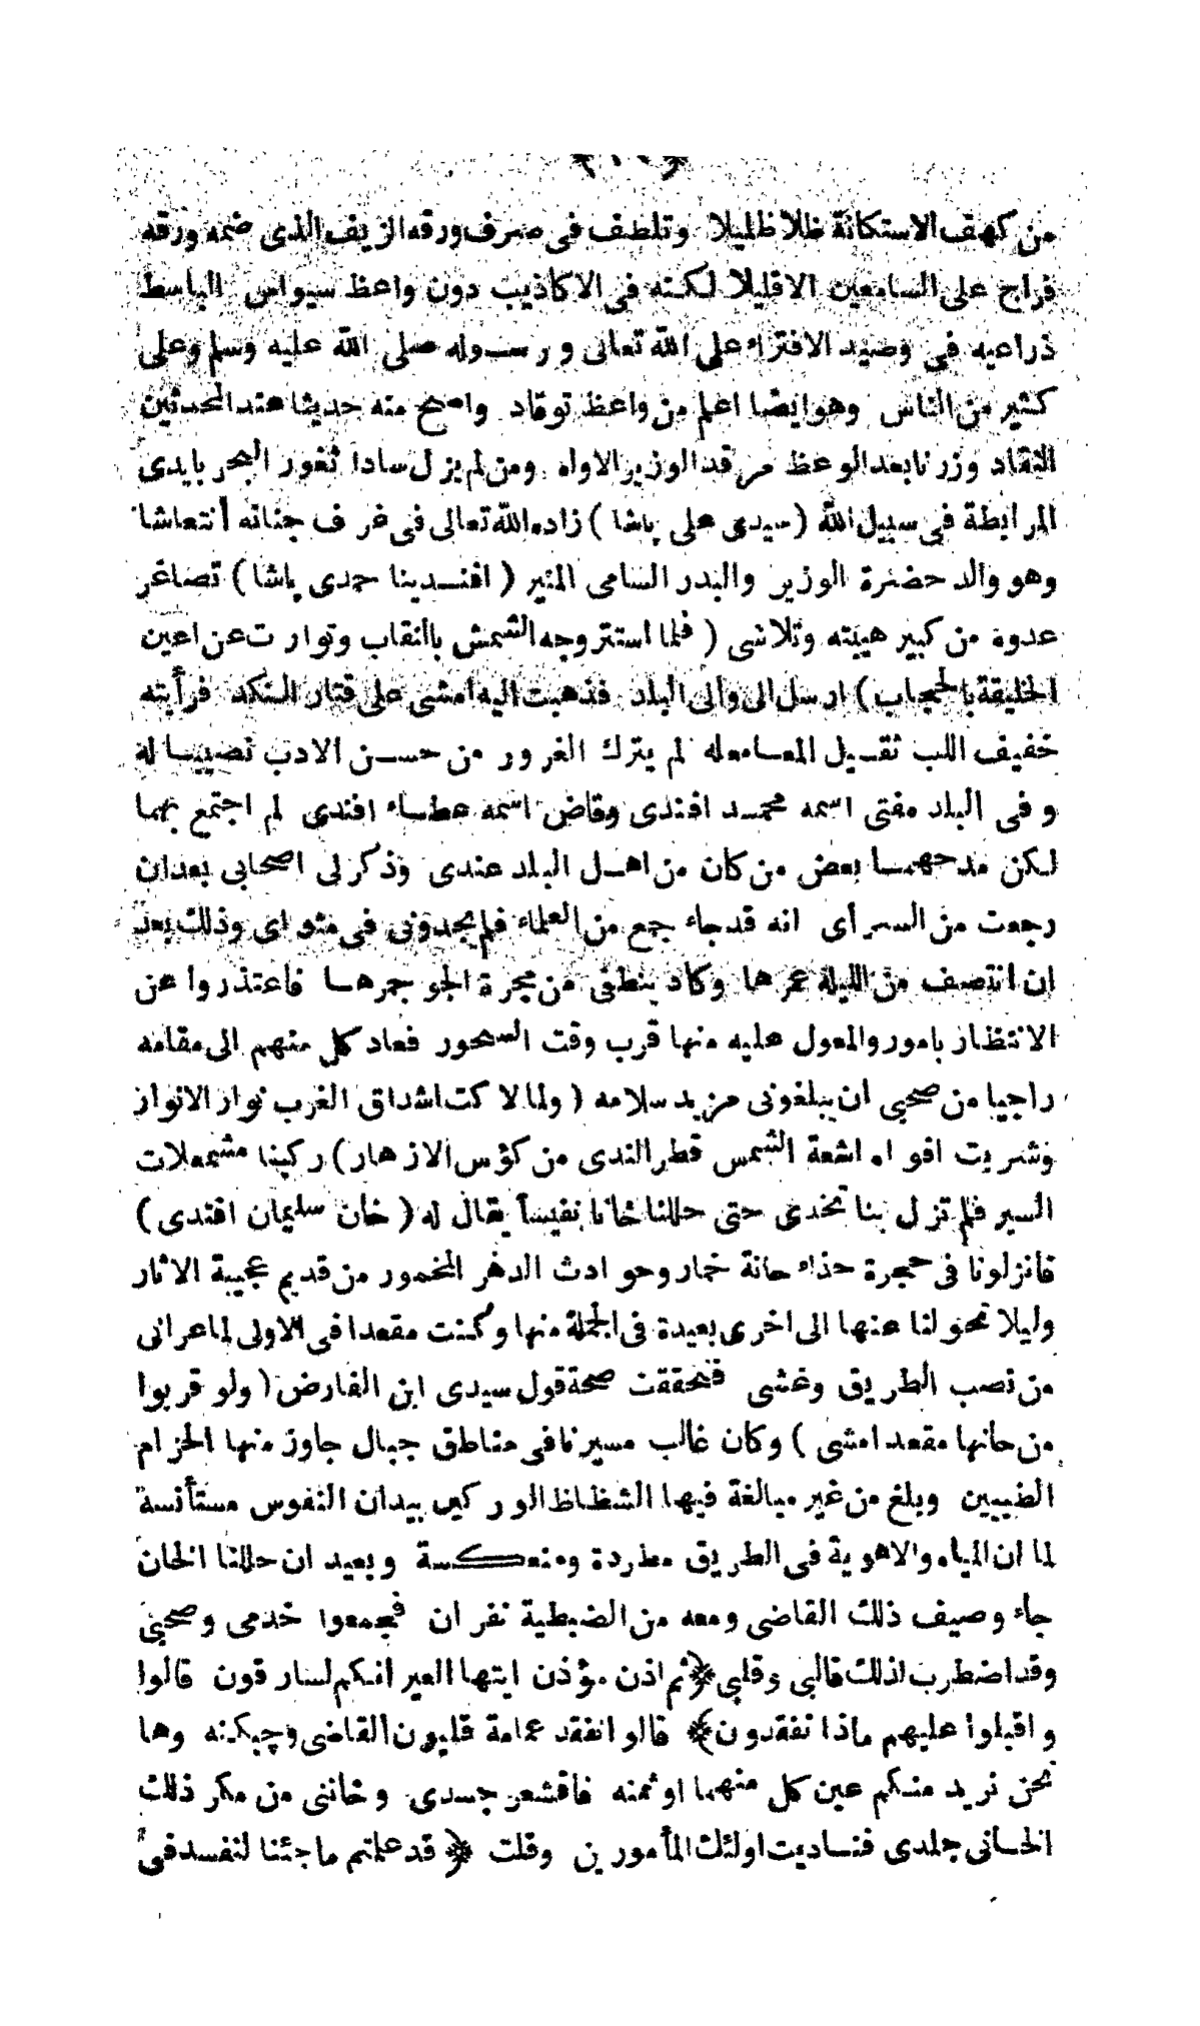 من كهف الاستكانة ظلا ظليلا وتلطف فى صرف ورقه الزيف الذى ضمه ورقه
فراج على السامعين الاقليلا لكنه فى الاكاذيب دون واعظ سيواس الباسط
ذراعيه فى وصيد الافتراء على الله تعالى ورسوله صلى الله عليه وسلم وعلى
كثير من الناس وهو ايضا اعلم من واعظ توقاد واصح منه حديثا عند المحدثين
النقاد وزرنا بعد الوعظ مرقد الوزير الاواه ومن لم يزل سادا ثغور البحر بايدى
المرابطة فى سبيل الله (سيدى على پاشا) زاده الله تعالى فى غرف جنانه أنتعاشا
وهو والد حضرة الوزير والبدر السامى المنير (افندينا حمدى پاشا) تصاغر
عدوه من كبير هيبته وتلاشى (فلما استتر وجه الشمش بالنقاب وتوارت عن اعين
الخليقة بالحجاب) ارسل الى والى البلد فذهبت اليه امشى على قتار النكد فرأيته
خفيف اللب ثقيل المعامله لم يترك الغرور من حسن الادب نصيبا له
وفى البلد مفتى اسمه محمد افندى وقاض اسمه عطاء افندى لم اجتمع بهما
لكن مدحهما بعض من كان من اهل البلد عندى وذكر لى اصحابى بعد ان
رجعت من السرأى انه قد جاء جمع من العلماء فلم يجدونى فى مثواى وذلك بعد
ان انتصف من الليلة عمرها وكاد ينطفى من مجرة الجو جمرها فاعتذروا عن
الانتظار بامور والمعول عليه منها قرب وقت السحور فعاد كل منهم الى مقامه
راجيا من صحبى ان يبلغونى مزيد سلامه (ولما لاكت اشداق الغرب نوار الانوار
وشربت افواه اشعة الشمس قطر الندى من كؤس الازهار) ركبنا مشمعلات
السير فلم تزل بنا تخدى حتى حللنا خانا نفيسا يقال له (خان سليمان افندى)
فانزلونا فى حجرة حذاء حانة خمار وحوادث الدهر المخمور من قديم عجيبة الاثار
وليلا تحولنا عنها الى اخرى بعيدة فى الجملة منها وكنت مقعدا فى الاولى لما عرانى
من نصب الطريق وغشى فتحققت صحة قول سيدى ابن الفارض (ولو قربوا
من حانها مقعد امشى) وكان غالب مسيرنا فى مناطق جبال جاوز منها الحزام
الطبيين وبلغ من غير مبالغة فيها الشظاظ الوركين بيدان النفوس مستأنسة
لما ان المياه والاهوية فى الطريق مطردة ومنعكسة وبعيد ان حللنا الخان
جاء وصيف ذلك القاضى ومعه من الضبطية نفران فجمعوا خدمى وصحبى
وقد اضطرب لذلك قالبى وقلبى ﴿ثم اذن مؤذن ايتها العير انكم لسارقون قالوا
واقبلوا عليهم ماذا تفقدون﴾ قالوا نفقد عمامة قليون القاضى وچبكنه وها
نحن نريد منكم عين كل منهما او ثمنه فاقشعر جسدى وخاننى من مكر ذلك
الخانى جلدى فناديت اولئك المأمورين وقلت ﴿قد علمتم ما جئنا لنفسد فى